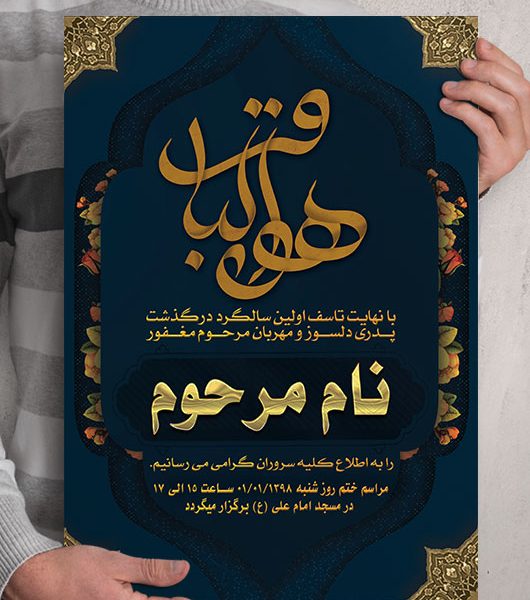 هوالباقی
با نهایت تاسف اولین سالگرد درگذشت
پدری دلسوز و مهربان مرحوم مغفور
نام مرحوم
را به اطلاع کلیه سروران گرامی می رسانیم.
مراسم ختم روز شنبه ۰۱/۰۱/۱۳۹۸ ساعت ۱۵ الی ۱۷
در مسجد امام علی (ع) برگزار میگردد